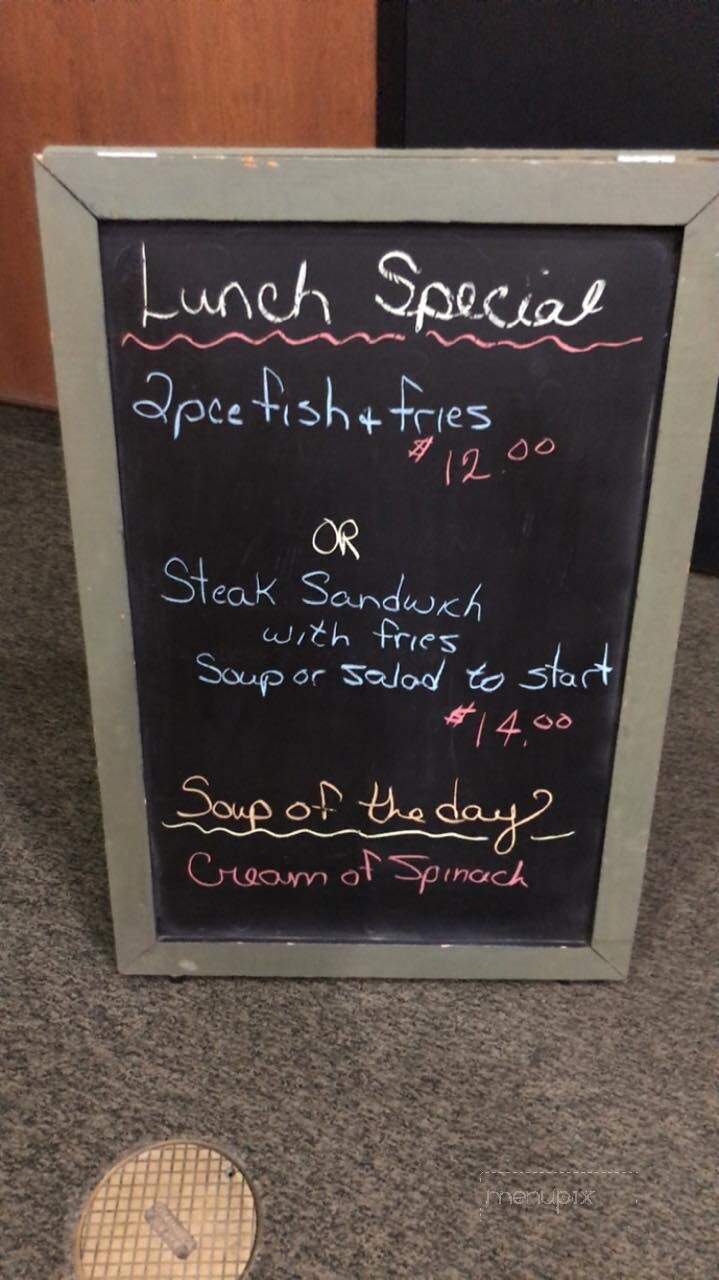 Lunch Special
2pce fish + fries
$12.00
OR
Steak Sandwich
with fries
Soup or salad to start
$14.00
Soup of the day
Cream of Spinach
menupix